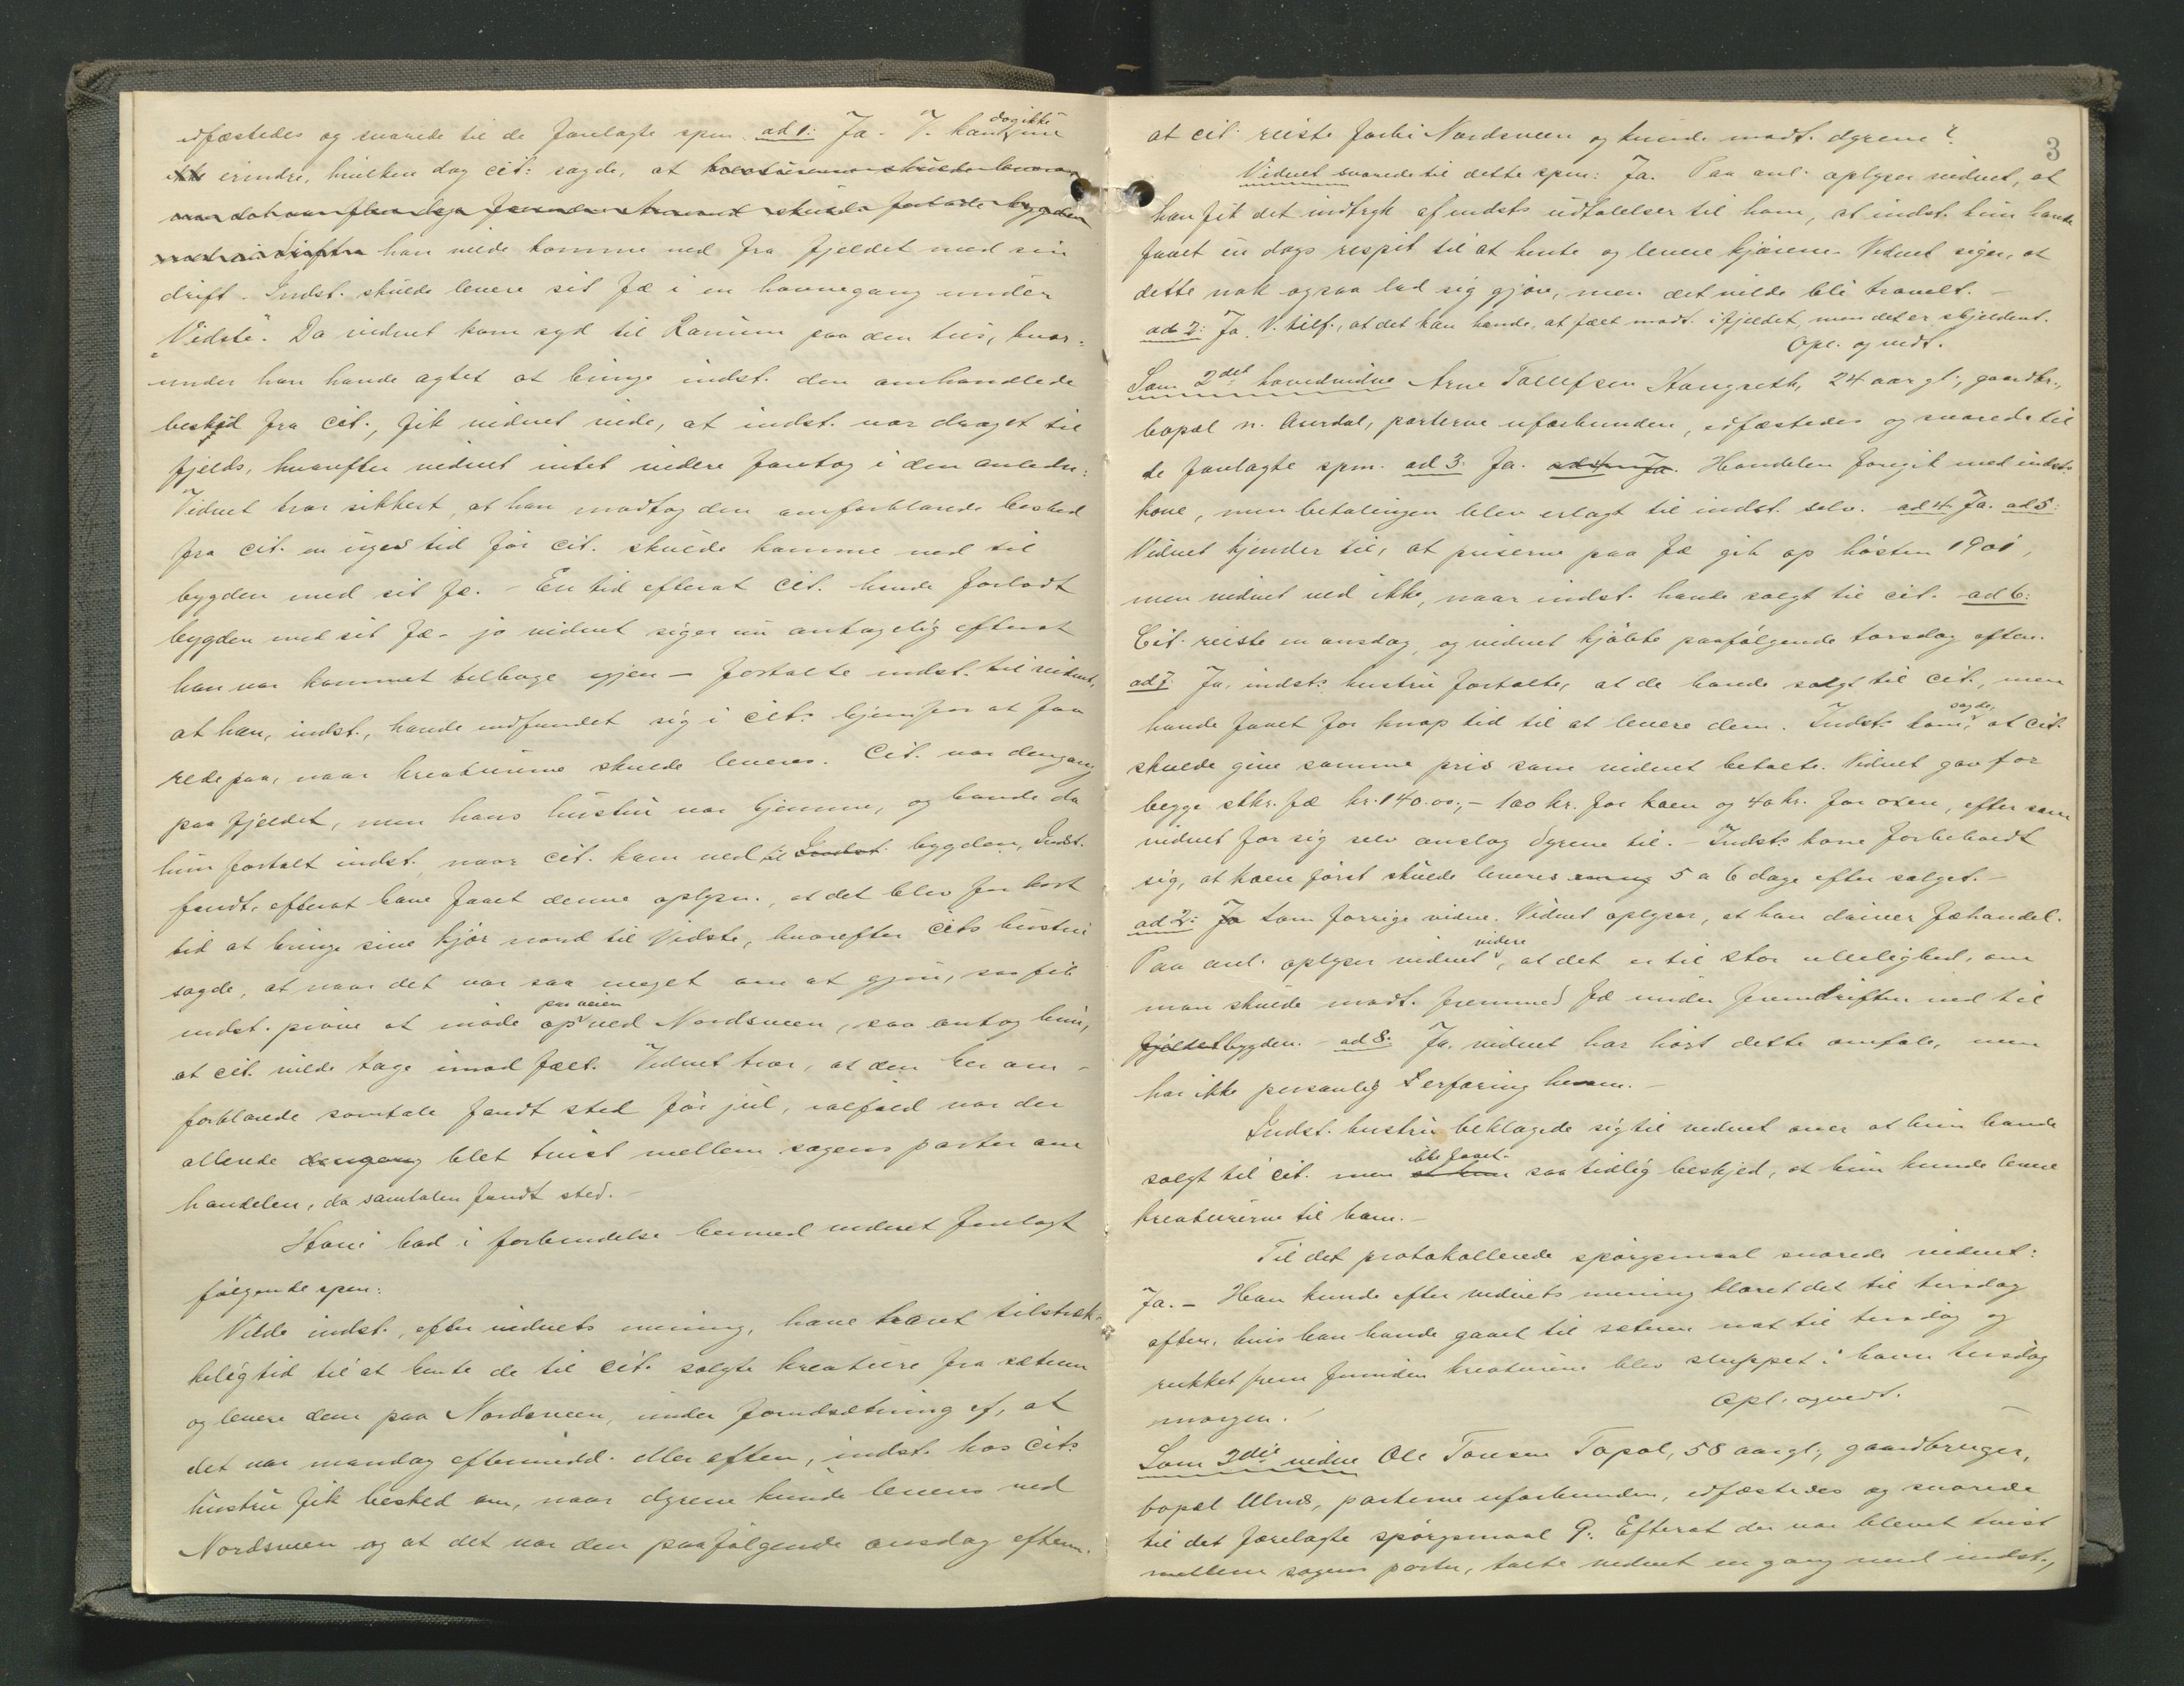 edfæstedes og svarede til de forelagte spm. ad 1: Ja. V. kan dog ikke nu
ikke erindre, hvilken dag cit. sagde, at kreaturerne skulde leveres
han vilde komme ned fra fjeldet med sin
drift. Indst. skulde levere sit fæ i en havnegang under
"Vidste". Da vidnet kom syd til Ranum paa den tur, hvor-
under han havde agtet at bringe indst. den omhandlede
besked fra cit., fik vidnet vide, at indst. var draget til
fjelds, hvorefter vidnet intet videre foretog i den anledn:
Vidnet tror sikkert, at han modtog den omforklarede besked
fra cit. en uges tid før cit. skulde komme ned til
bygden med sit fæ. - En tid efterat cit. havde forladt
bygden med sit fæ - jo vidnet siger nu antagelig efterat
han var kommet tilbage igjen - fortalte indst. til vidnet,
at han, indst., havde indfundet sig i cits hjem for at faa
rede paa, naar kreaturerne skulde leveres. Cit. var dengang
paa fjeldet, men hans hustru var hjemme, og havde da
hun fortalt indst. naar cit. kom ned til Indst. bygden, Indst.
fandt, efterat have faaet denne oplysn., at det blev for kort
tid at bringe sine kjør nord til Vidste, hvorefter cits hustru
sagde, at naar det var saa meget om at gjøre, saa fik
indst. prøve at møde op paa veien ved Nordsveen, saa antog hun,
at cit. vilde tage imod fæet. Vidnet tror, at den her om-
forklarede samtale fandt sted før jul, ialfald var der
allerede dengang blet tvist mellem sagens parter om
handelen, da samtalen fandt sted. -
Hove bad i forbindelse hermed vidnet forelagt
følgende spm:
Vilde indst., efter vidnets mening, have havt tilstræk-
kelig tid til at hente de til cit. solgte kreature fra sæteren
og levere dem paa Nordsveen, under forudsætning af, at
det var mandag eftermidd. eller aften, indst. hos cits
hustru fik besked om, naar dyrene kunde leveres ved
Nordsveen og at det var den paafølgende onsdag efterm.
3
at cit. reiste forbi Nordsveen og kunde modt. dyrene?
Vidnet svarede til dette spm: Ja. Paa anl. oplyser vidnet, at
han fik det indtryk af indsts udtalelser til ham, at indst. kun havde
faaet en dags respit til at hente og levere kjørene. Vidnet siger, at
dette nok ogsaa lod sig gjøre, men det vilde bli travelt. -
ad 2: Ja. V. tilf., at det kan hænde, at fæet modt. i fjeldet, men det er skjeldent.
Opl. og vedt.
Som 2det hovedvidne Arne Tollefsen Kongreth, 24 aar gl., gaardbr.,
bopæl n. Aurdal, parterne uforbunden, edfæstedes og svarede til
de forelagte spm. ad 3: Ja. ad 4: Ja. Handelen foregik med indsts
kone, men betalingen blev erlagt til indst. selv. ad 4. Ja. ad 5:
Vidnet kjender til, at priserne paa fæ gik op høsten 1901,
men vidnet ved ikke, naar indst. havde solgt til cit. ad 6:
Cit. reiste en onsdag, og vidnet kjøbte paafølgende torsdag aften.
ad 7. Ja, indsts hustru fortalte, at de havde solgt til cit., men
havde faaet for knap tid til at levere dem. Indsts kone sagde, at cit.
skulde give samme pris som vidnet betalte. Vidnet gav for
begge stkr. fæ kr. 140.00, - 100 kr. for koen og 40 kr. for oxen, efter som
vidnet for sig selv anslog dyrene til. - Indsts kone forbeholdt
sig, at koen først skulde leveres 5 a 6 dage efter salget. -
ad 2: Ja som forrige vidne. Vidnet oplyser, at han driver fæhandel.
Paa anl. oplyser vidnet videre, at det er til stor uleilighed, om
man skulde modt. fremmed fæ under fremdriften ned til
fjeldet bygden. - ad 8. Ja. vidnet har hørt dette omtale, men
har ikke personlig erfaring herom. -
Indst. hustru beklagede sig til vidnet over at hun havde
solgt til cit. men at hun ikke faaet saa tidlig beskjed, at hun kunde levere
kreaturerne til ham. -
Til det protokollerede spørgsmaal svarede vidnet:
Ja. - Han kunde efter vidnets mening klaret det til tirsdag
aften, hvis han havde gaaet til sæteren nat til tirsdag og
rukket frem forinden kreaturene blev sluppet i havn tirsdag
morgen. -
Opl. og vedt.
Som 3die vidne Ole Tonsen Topal, 58 aar gl., gaardbruger,
bopæl Ulnes, parterne uforbunden, edfæstedes og svarede
til det forelagte spørgsmaal 9: Efterat der var blevet tvist
mellem sagens parter, talte vidnet en gang med indst.,